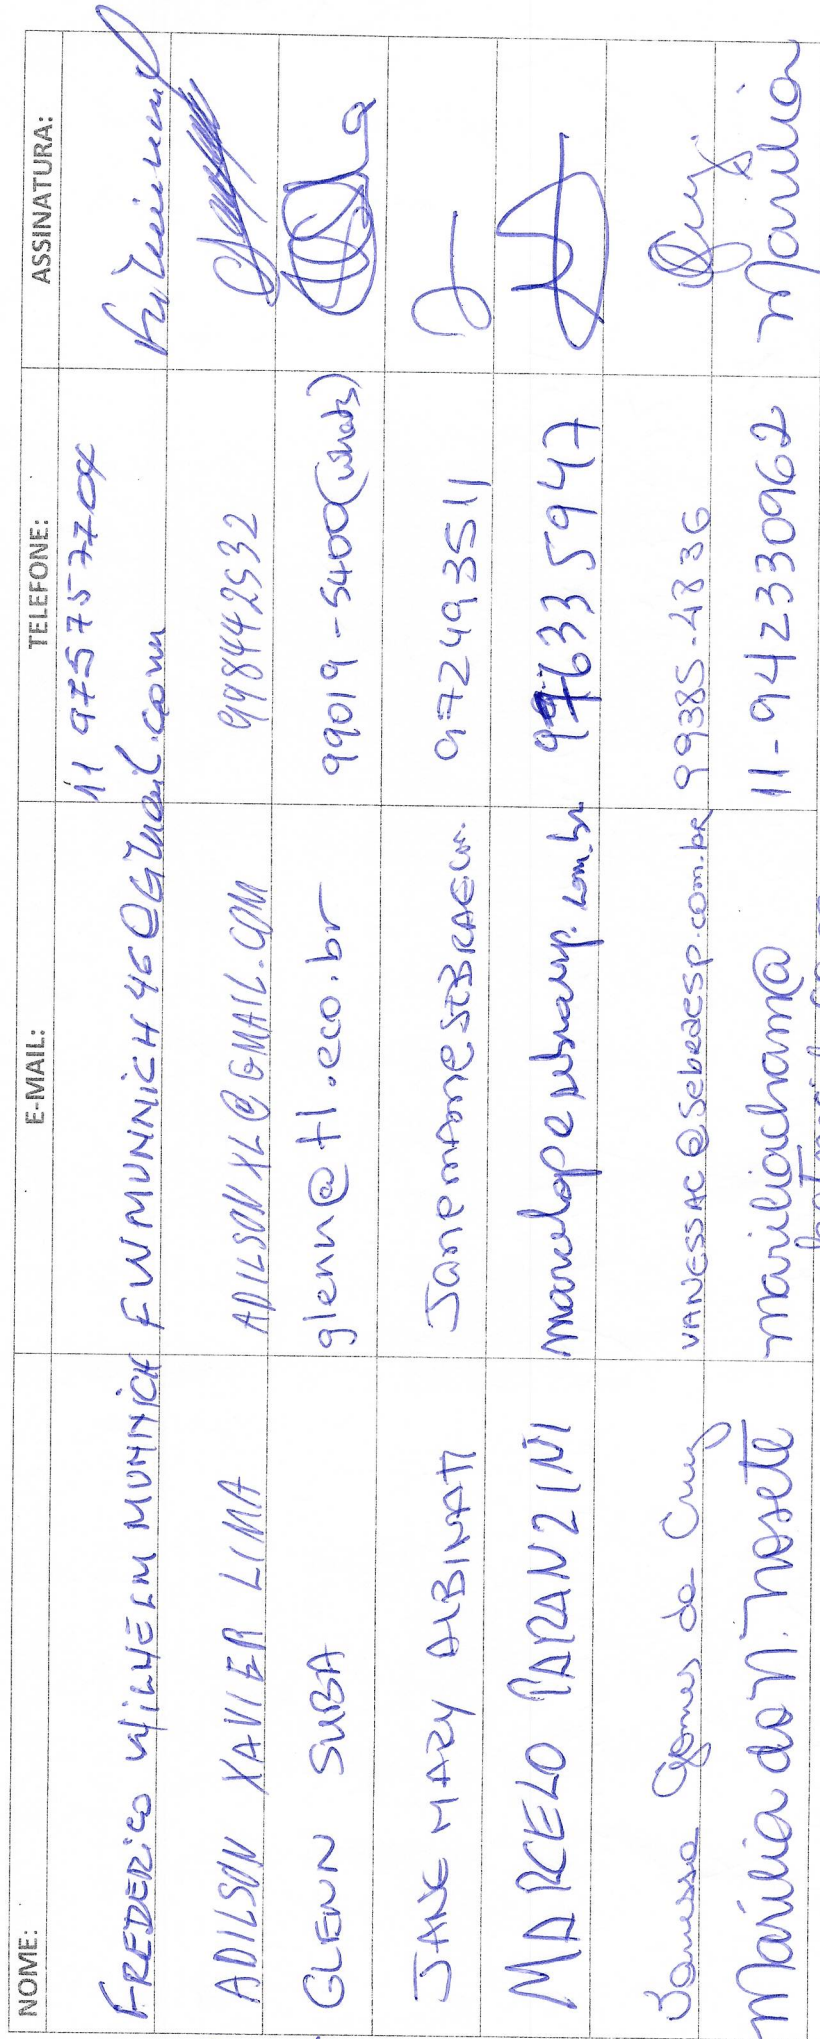 NOME: E-MAIL: TELEFONE: ASSINATURA:
FREDERICO WILHELM MUNNICH FWMUNNICH46@Gmail.com 11 975757704
ADILSON XAVIER LIMA ADILSONXL@GMAIL.COM 998442532
GLENN SUBA glenn@tl.eco.br 99019-5400 (whats)
JANE MARY ALBINATI 972493511
MARCELO PARANZINI 996335947
Vanessa Gomes da Cruz VANESSAC@sebraesp.com.br 99385-4836
Marília do N. Nosete mariliacham@ 11-942330962 Marília